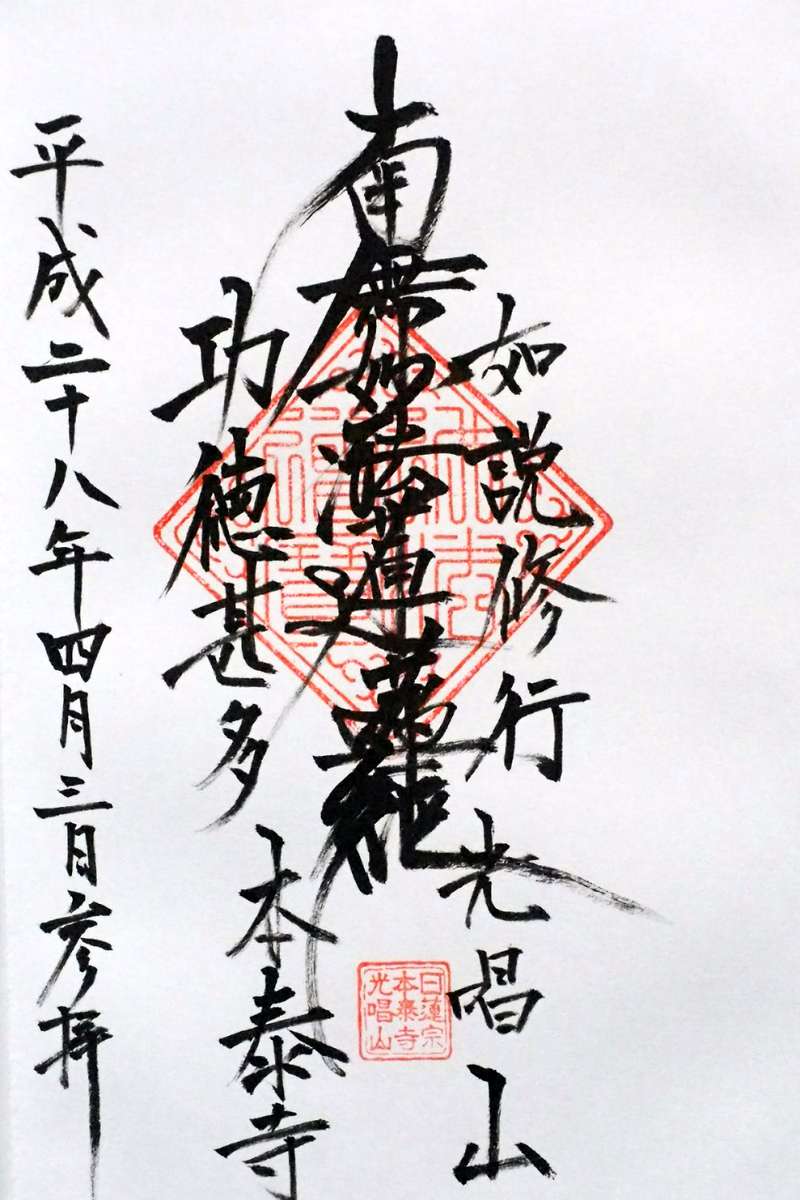 如説修行 光唱山
南無妙法蓮華経
功徳甚多 本泰寺
平成二十八年四月三日参拝
日蓮宗
本泰寺
光唱山